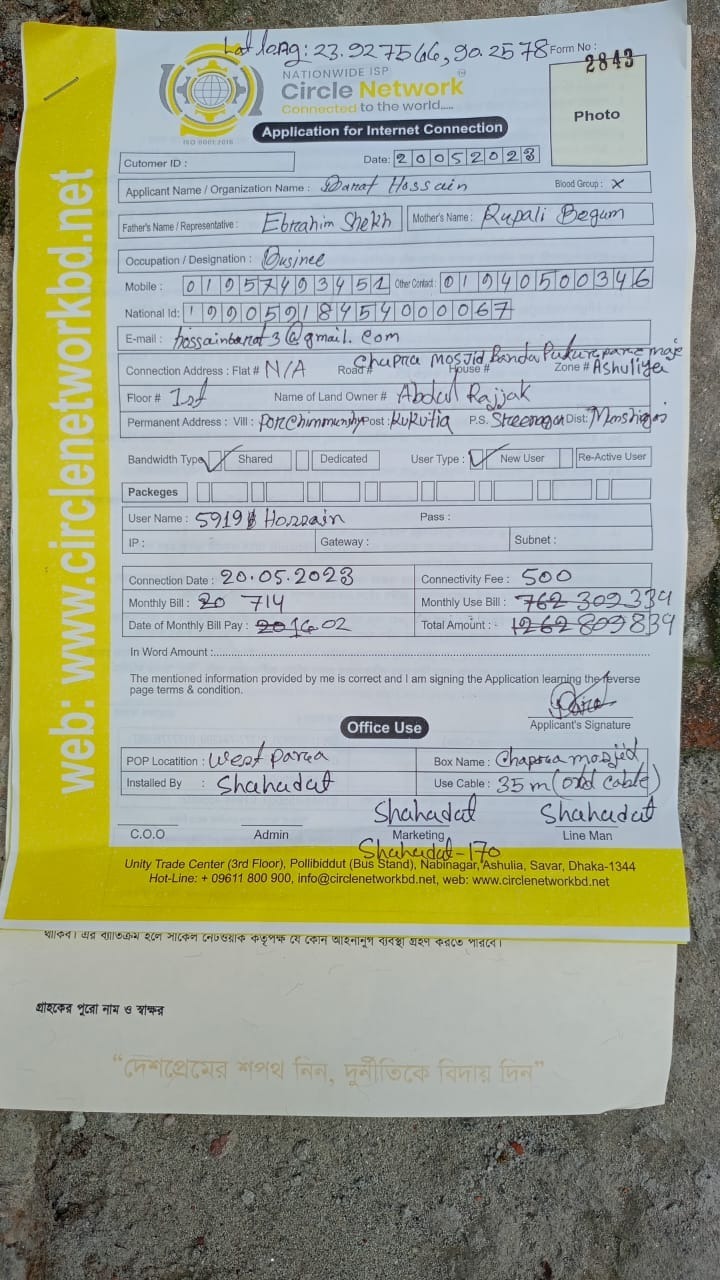 Lat lang: 23.927566, 90.2578 Form No :
2843
NATIONWIDE ISP
Circle Network
Connected to the world.....
ISO 9001:2015
Photo
Application for Internet Connection
Cutomer ID :
Date: 20052023
Applicant Name / Organization Name : Barat Hossain Blood Group : X
Father's Name / Representative : Ebrahim Shekh Mother's Name : Rupali Begum
Occupation / Designation : Businee
Mobile : 01957493451 Other Contact : 01940500346
National Id : 19905918454000067
E-mail : hossainbarat3@gmail.com
Chapra Mosjid Banda Pukurpare
Connection Address : Flat # N/A Road # House # Zone # Ashuliya
Floor # 1st Name of Land Owner # Abdul Rajjak
Permanent Address : Vill : Post : Kukutia P.S. Sreenagar Dist:
Bandwidth Type Shared Dedicated User Type : New User Re-Active User
Packeges
User Name : 5919 Hossain Pass :
IP : Gateway : Subnet :
Connection Date : 20.05.2023 Connectivity Fee : 500
Monthly Bill : 20 714 Monthly Use Bill : 762 309 339
Date of Monthly Bill Pay : 02 Total Amount : - 1262 809 839
In Word Amount :
The mentioned information provided by me is correct and I am signing the Application learning the reverse
page terms & condition.
Applicant's Signature
Office Use
POP Locatition : West Parca Box Name : Chaprca mosjid
Installed By : Shahadat Use Cable : 35 m (old cable)
Shahadat Shahadat
C.O.O Admin Marketing Line Man
Shahadat-170
Unity Trade Center (3rd Floor), Pollibiddut (Bus Stand), Nabinagar, Ashulia, Savar, Dhaka-1344
Hot-Line: + 09611 800 900, info@circlenetworkbd.net, web: www.circlenetworkbd.net
web: www.circlenetworkbd.net
থাকিব। এর ব্যতিক্রম হলে সার্কেল নেটওয়ার্ক কতৃপক্ষ যে কোন আইনানুগ ব্যবস্থা গ্রহণ করতে পারবে।
গ্রাহকের পুরো নাম ও স্বাক্ষর
“দেশপ্রেমের শপথ নিন, দুর্নীতিকে বিদায় দিন”